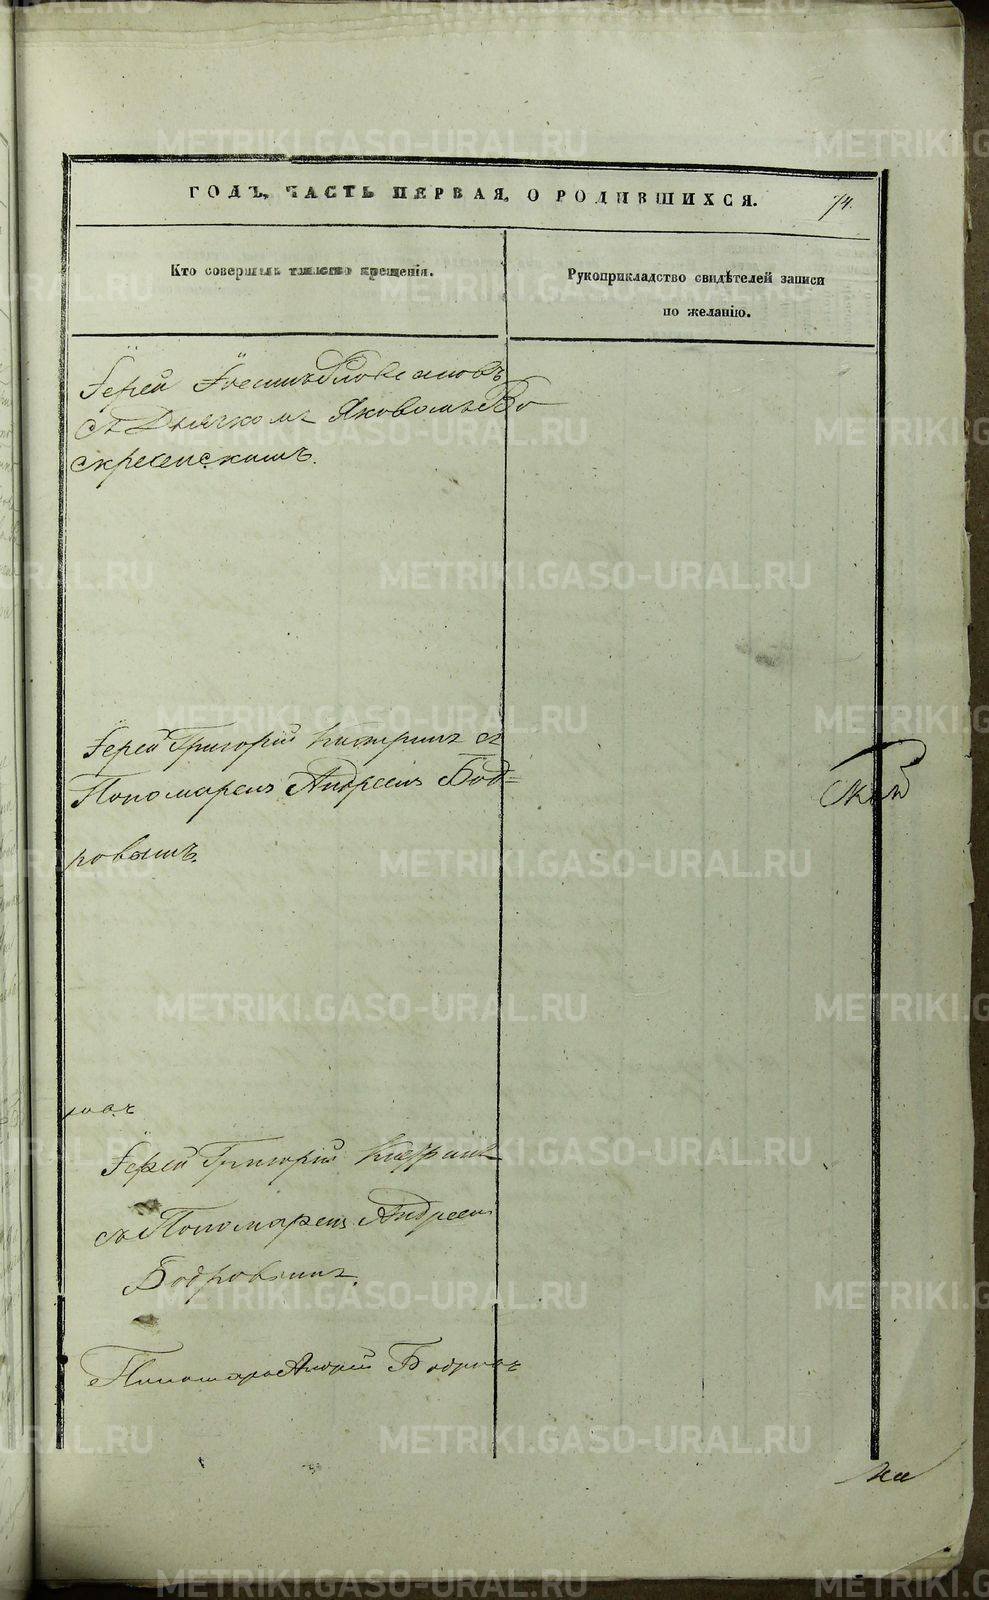 ГОДЪ, ЧАСТЬ ПЕРВАЯ, О РОДИВШИХСЯ.
74.
Кто совершалъ таинство крещенія.
Рукоприкладство свидѣтелей записи
по желанію.
Іерей
съ Дьячкомъ Яковомъ Во
скресенскимъ.
Іерей Григорій съ
Пономаремъ Андреемъ Бод=
ровымъ.
Іерей Григорій
съ Пономаремъ Андреемъ
Бодровымъ.
Пономарь Андрей Бодровъ
METRIKI.GASO-URAL.RU